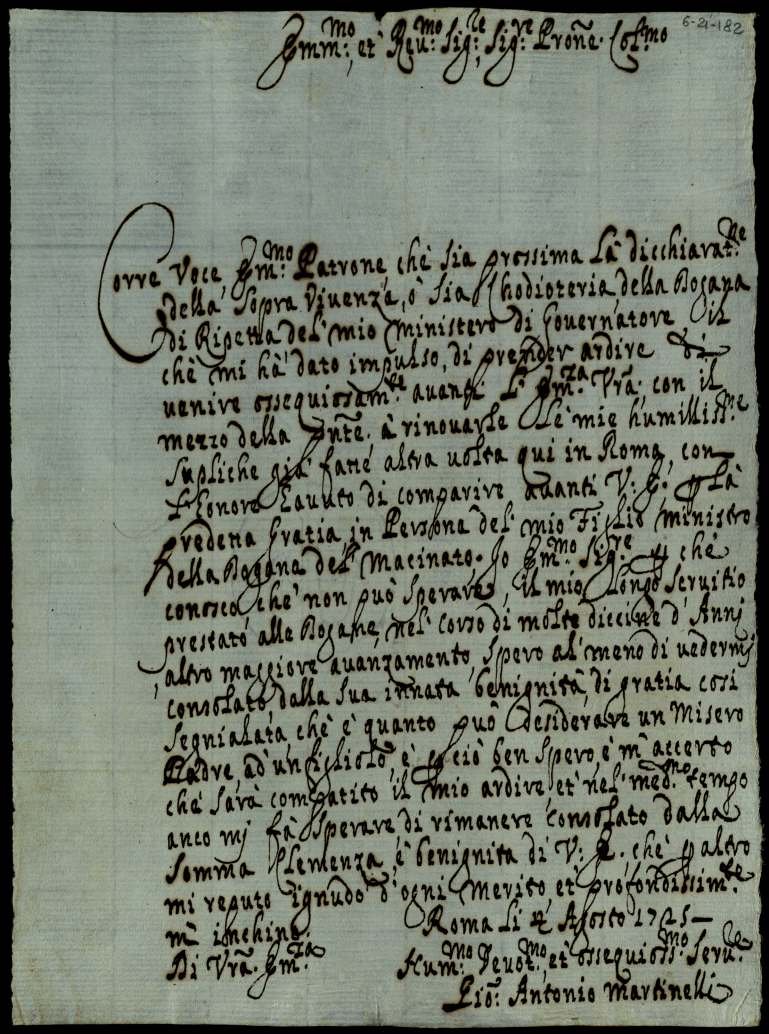 6-21-182
Emm:mo et Reu:mo Sig:re Sig:re Proñe Col:mo
Corre Voce Em:mo Patrone che sia prossima La dicchiarat:ne
della Sopra Viuenza, ò sia della Dogana
di Ripetta del mio Ministero di Gouernatore il
che mi hà dato impulso, di prender ardire di
uenire ossequiosam:te auanti L' Em:za Vrã con il
mezzo della pñte à rinouarle Le mie humilliss:me
Supliche già fatte altra uolta qui in Roma, con
L'Honore hauuto di comparire auanti V: E: p La
predetta Gratia in Persona del mio Figlio Ministro
della Dogana del Macinato. Io Em:mo Sig:re p che
conosco che non può sperare il mio Longo Seruitio
prestato alle Dogane nel corso di molte diccine d'Annj
altro maggiore auanzamento, spero al meno di uedermj
consolato dalla sua innata benignità di gratia così
Segnialata, che è quanto può desiderare un Misero
Padre ad un figliolo, è p ciò ben spero, è m'accerto
che sarà compatito il mio ardire et nel med:mo tempo
anco mj fà sperare di rimanere consolato dalla
somma Clemenza, è benignita di V: E. che p altro
mi reputo ignudo d'ogni Merito et profondissim:te
m'inchino.
Roma Li Agosto 1725
Di Vrã Em:za
Hum:mo Deuot:mo et ossequiosis:mo Seru:re
Antonio Martinelli